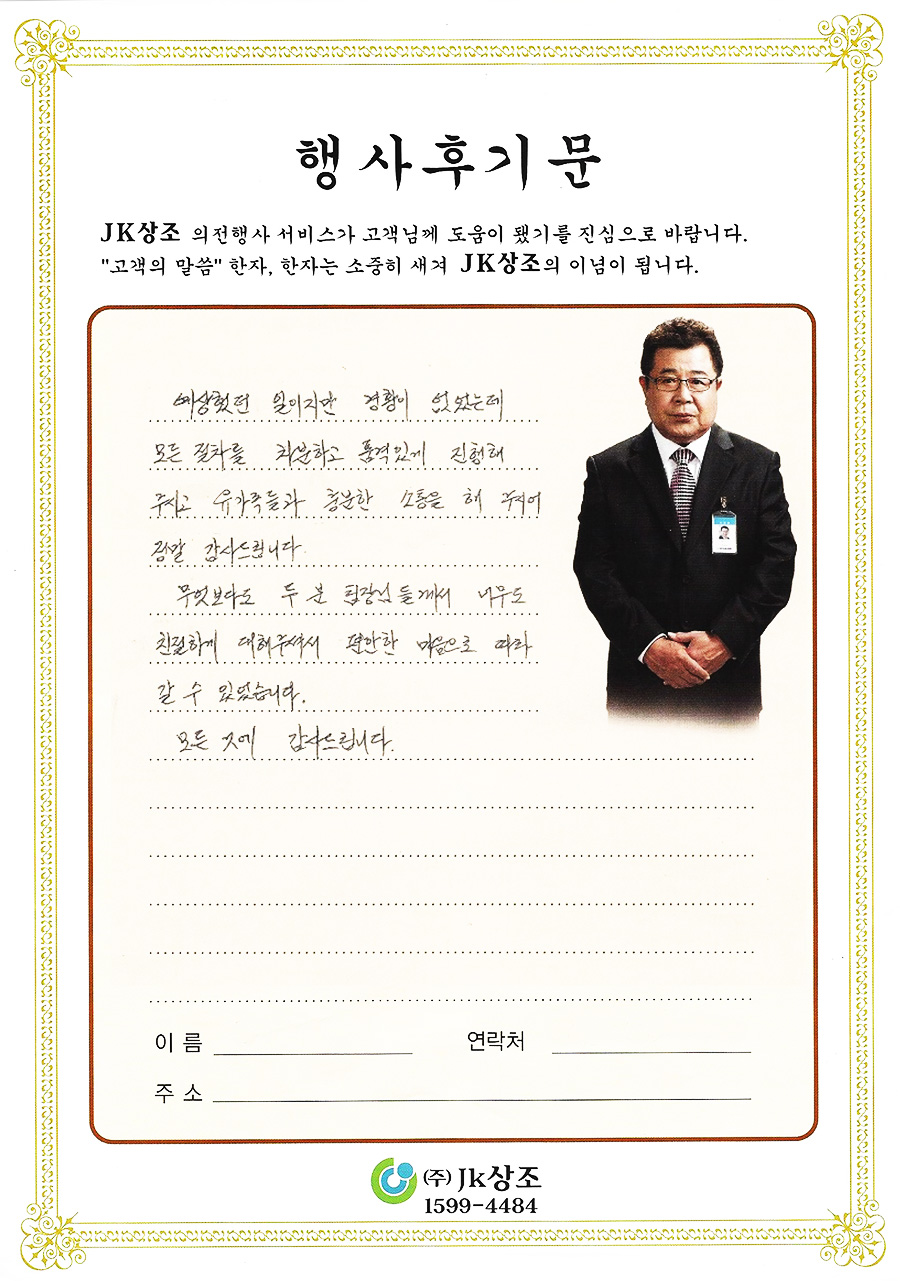 행사후기문
JK상조 의전행사 서비스가 고객님께 도움이 됐기를 진심으로 바랍니다.
"고객의 말씀" 한자, 한자는 소중히 새겨 JK상조의 이념이 됩니다.
예상했던 일이지만 경황이 없었는데
모든 절차를 차분하고 품격있게 진행해
주시고 유가족들과 충분한 소통을 해 주시어
정말 감사드립니다.
무엇보다도 두 분 팀장님들께서 너무도
친절하게 대해주셔서 편안한 마음으로 따라
갈 수 있었습니다.
모든 것에 감사드립니다.
이 름 연락처
주 소
(주) Jk상조
1599-4484